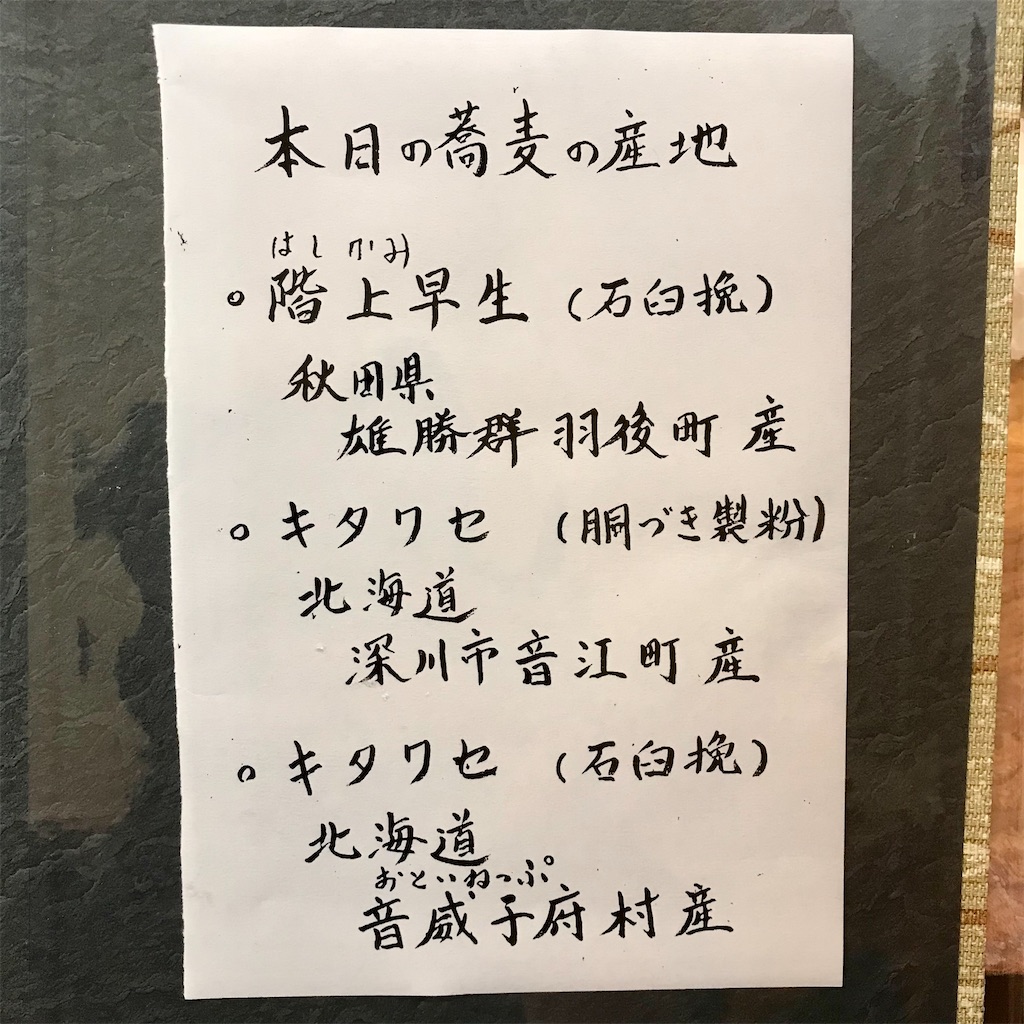 本日の蕎麦の産地
はしかみ
○階上早生(石臼挽)
秋田県
雄勝群羽後町産
○キタワセ(胴づき製粉)
北海道
深川市音江町産
○キタワセ(石臼挽)
北海道
おといねっぷ
音威子府村産